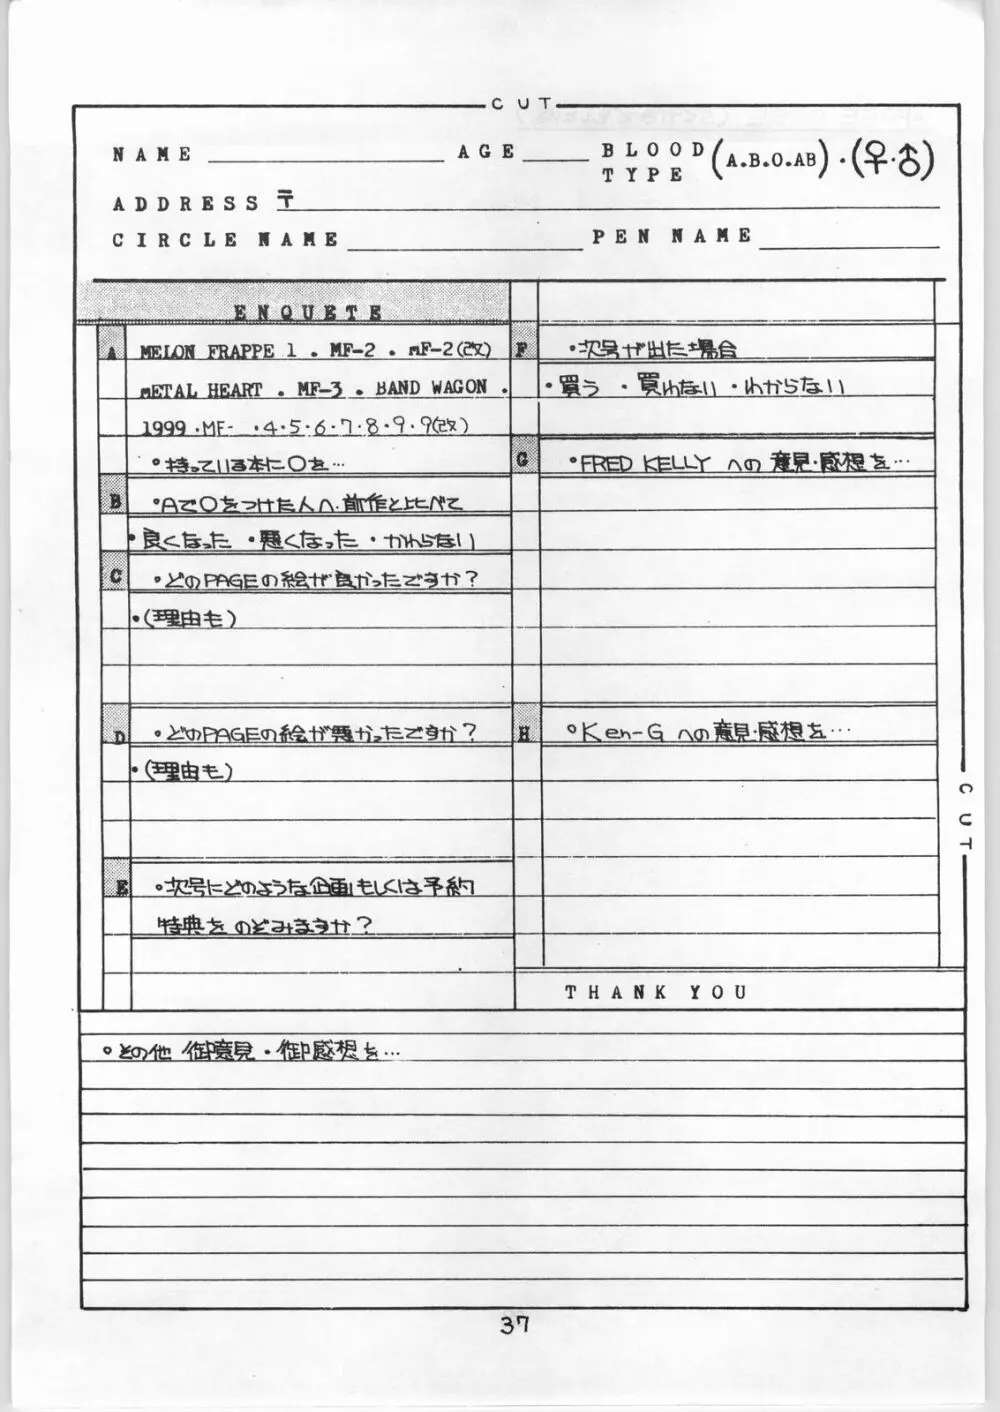 CUT
NAME AGE BLOOD TYPE (A.B.O.AB)・(♀・♂)
ADDRESS 〒
CIRCLE NAME PEN NAME
ENQUETE
A MELON FRAPPE 1 . MF-2 . mF-2(改)
mETAL HEART . MF-3 . BAND WAGON .
1999・MF- ・4・5・6・7・8・9・9(改)
・持っている本に○を…
B ・Aで○をつけた人へ・前作と比べて
・良くなった ・悪くなった ・かわらない
C ・どのPAGEの絵が良かったですか?
・(理由も)
D ・どのPAGEの絵が悪かったですか?
・(理由も)
E ・次号にどのような企画もしくは予約
特典を のぞみますか?
F ・次号が出た場合
・買う ・買わない ・わからない
G ・FRED KELLY への 意見・感想を…
H ・Ken-G への意見・感想を…
THANK YOU
CUT
・その他 御意見・御感想を…
37